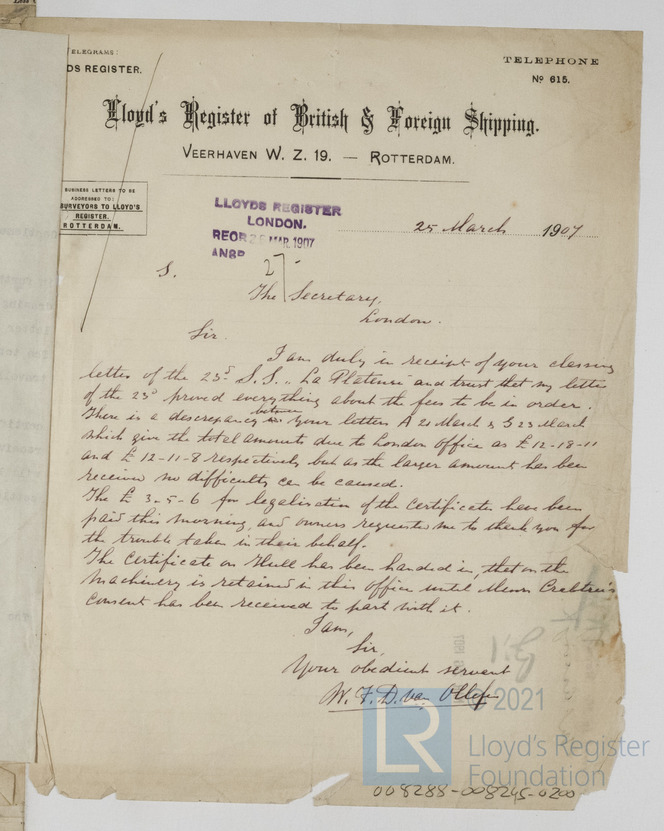 ELEGRAMS:
DS REGISTER.
TELEPHONE
No 615.
Lloyd's Register of British & Foreign Shipping.
VEERHAVEN W. Z. 19. — ROTTERDAM.
BUSINESS LETTERS TO BE
ADDRESSED TO:
SURVEYORS TO LLOYD'S
REGISTER.
ROTTERDAM.
LLOYDS REGISTER
LONDON.
MAR. 1907
25 March 1907
27
S.
The Secretary,
London.
Sir.
I am duly in receipt of your classing
letter of the 23d S.S. "La Platense" and trust that my letter
of the 23d proved everything about the fees to be in order.
There is a descrepancy between your letters A 21 March & G 23 March
which give the total amounts due to London Office as £ 12-18-11
and £ 12-11-8 respectively but as the larger amount has been
received no difficulty can be caused.
The £ 3-5-6 for legalisation of the Certificates have been
paid this morning, and owners requested me to thank you for
the trouble taken in their behalf.
The Certificate on Hull has been handed in, that on the
Machinery is retained in this Office until Messrs Crabtree's
consent has been received to part with it.
I am,
Sir,
Your obedient servant
W. F. D. van Ollefen
© 2021
LR
Lloyd's Register
Foundation
008288-008245-0200